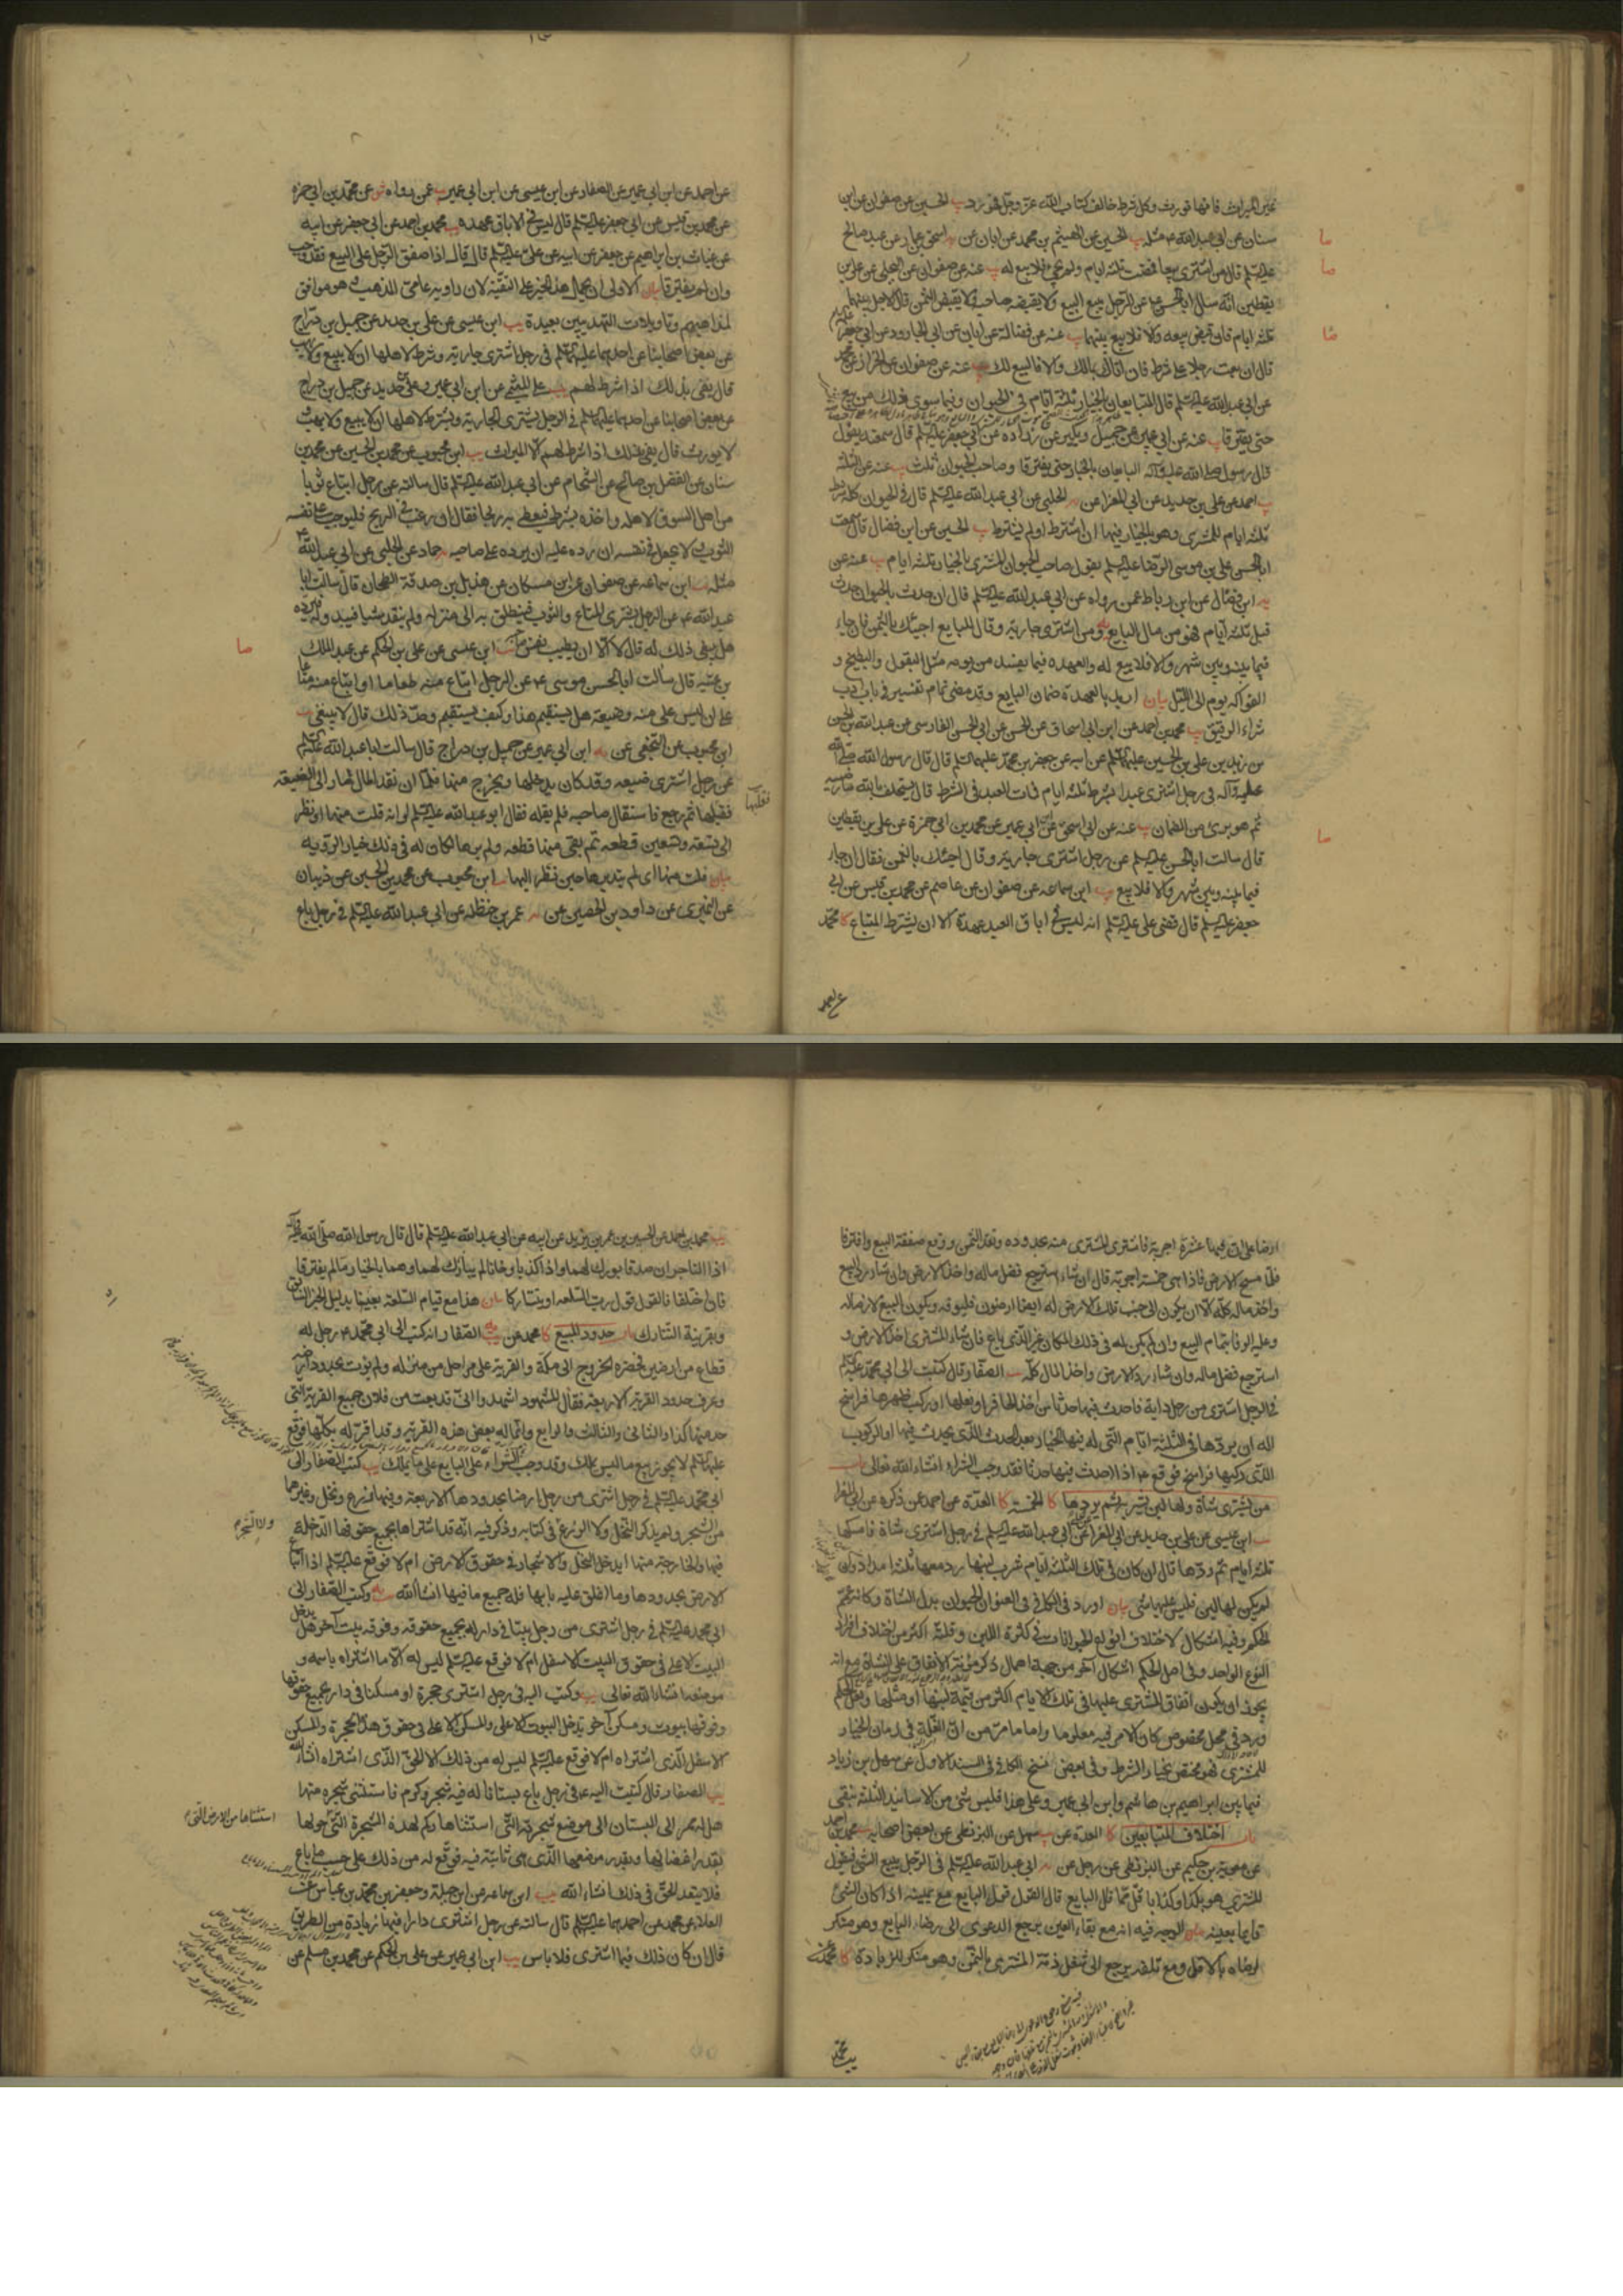 غير الميراث فانها تورث وكل شرط خالف كتاب الله عز وجل فهو رد يب الحسين عن صفوان عن ابن
سنان عن ابي عبد الله ع مثله يب الحسين عن الهيثم بن محمد عن ابان عن يه اسحق بن عمار عن عبد صالح
عليه السلم قال من اشترى بيعا فمضت ثلثة ايام ولم يجئ فلا بيع له يب عنه عن صفوان عن البجلي عن علي بن
يقطين انه سأل ابا الحسن ع عن الرجل يبيع البيع ولا يقبضه صاحبه ولا يقبض الثمن قال الاجل بينهما
ثلثة ايام فان قبض بيعه والا فلا بيع بينهما يب عنه عن فضالة عن ابان عن ابي الجارود عن ابي جعفر
قال ان بعت رجلا على شرط فان اتاك بمالك والا فالبيع لك يب عنه عن صفوان عن الخزاز عن محمد
عن ابي عبد الله عليه السلم قال المتبايعان بالخيار ثلثة ايام في الحيوان وفيما سوى ذلك من بيع
حتى يفترقا يب عنه عن ابي عمير عن جميل وبكير عن زرارة عن ابي جعفر عليه السلم قال سمعته يقول
قال رسول الله صلى الله عليه وآله البايعان بالخيار حتى يفترقا وصاحب الحيوان ثلث يب عنه عن الثلثة
يب احمد عن علي بن حديد عن ابي المغرا عن يه الحلبي عن ابي عبد الله عليه السلم قال في الحيوان كله شرط
ثلثة ايام للمشتري وهو بالخيار فيها ان اشترط او لم يشترط يب الحسين عن ابن فضال قال سمعت
ابا الحسن علي بن موسى الرضا عليه السلم يقول صاحب الحيوان المشترى بالخيار ثلثة ايام يب عنه عن
يه ابن فضال عن ابن رباط عمن رواه عن ابي عبد الله عليه السلم قال ان حدث بالحيوان حدث
قبل ثلثة ايام فهو من مال البايع يه ومن اشترى جارية وقال للبايع اجيئك بالثمن فان جاء
فيما بينه وبين شهر والا فلا بيع له والعهدة فيما يفسد من يومه مثل البقول والبطيخ و
الفواكه يوم الى الليل بيان اريد بالعهدة ضمان البايع وقد مضى تمام تفسير في باب ادب
شراء الرقيق يب محمد بن احمد عن ابن ابي اسحاق عن الحسن عن ابي الحسن الفارسي عن عبد الله بن الحسن
بن زيد بن علي بن الحسين عليهم السلم عن ابيه عن جعفر بن محمد عليهما السلم قال قال رسول الله صلى الله
عليه وآله في رجل اشترى عبدا بشرط ثلثة ايام فمات العبد في الشرط قال يستحلف بالله ما رضيه
ثم هو برئ من الضمان يب عنه عن ابي اسحق عن ابن ابي عمير عن محمد بن ابي حمزة عن علي بن يقطين
قال سالت ابا الحسن عليه السلم عن رجل اشترى جارية وقال اجيئك بالثمن فقال ان جاء
فيما بينه وبين شهر والا فلا بيع يب ابن سماعه عن صفوان عن عاصم عن محمد بن قيس عن ابي
جعفر عليه السلم قال قضى علي عليه السلم انه ليس في اباق العبد عهدة الا ان يشترط المبتاع كا محمد
عن احمد عن ابن ابي عمير عن الصفار عن ابن عيسى عن ابن ابي عمير يب عمن رواه عن محمد بن ابي حمزه
عن محمد بن قيس عن ابي جعفر عليه السلم قال ليس في الاباق عهدة يب محمد بن احمد عن ابي جعفر عن ابيه
عن غياث بن ابراهيم عن جعفر عن ابيه عن علي عليه السلم قال قال اذا صفق الرجل على البيع فقد وجب
وان لم يفترقا بيان الاولى ان يحمل هذا الخبر على التقية لان راويه عامي المذهب وهو موافق
لمذاهبهم وتاويلات التهذيبين بعيدة يب ابن عيسى عن علي بن حديد عن جميل بن دراج
عن بعض اصحابنا عن احدهما عليهما السلم في رجل اشترى جارية وشرط لاهلها ان لا يبيع ولا يهب
قال يفي بذلك اذا شرط لهم يب علي الميثمي عن ابن ابي عمير وعلي بن حديد عن جميل بن دراج
عن بعض اصحابنا عن احدهما عليهما السلم في الرجل يشترى الجارية ويشترط لاهلها ان لا يبيع ولا يهب
لا يورث قال يفي بذلك اذا شرط لهم الا الميراث يب ابن محبوب عن محمد بن الحسين عن محمد بن
سنان عن المفضل بن صالح عن الشحام عن ابي عبد الله عليه السلم قال سالته عن رجل ابتاع ثوبا
من اهل السوق لاهله واخذه بشرط فيعطى به ربحا فقال ان رغب في الربح فليوجب على نفسه
الثوب ولا يجعل في نفسه ان رده عليه ان يرده على صاحبه يه حماد عن الحلبي عن ابي عبد الله ع
مثله يب ابن سماعه عن صفوان عن ابن مسكان عن هذيل بن صدقة الطحان قال سالت ابا
عبد الله ع عن الرجل يشترى المتاع والثوب فينطلق به الى منزله ولم ينقد شيا فيبدو له فيرده
هل ينبغي ذلك له قال لا الا ان يطيب نفس صاحبه يب ابن عيسى عن علي بن الحكم عن عبد الملك
بن عتبه قال سالت ابا الحسن موسى ع عن الرجل ابتاع منه طعاما او ابتاع منه متاعا
على ان ليس على منه وضيعة هل يستقيم هذا وكيف يستقيم وحد ذلك قال لا ينبغي يب
ابن محبوب عن النخعي عن يه ابن ابي عمير عن جميل بن دراج قال سالت ابا عبد الله عليه السلم
عن رجل اشترى ضيعه وقد كان يدخلها ويخرج منها فلما ان نقد المال صار الى الضيعة
فقلبها ثم رجع فاستقال صاحبه فلم يقله فقال ابو عبد الله عليه السلم لو انه قلب منها او نظر
الى تسعة وتسعين قطعه ثم بقي منها قطعه ولم يرها لكان له في ذلك خيار الرؤيه
بيان قلب منها اى لم يتدبرها حين نظر اليها يب ابن محبوب عن محمد بن الحسين عن ذبيان
عن النميري عن داود بن الحصين عن يه عمر بن حنظله عن ابي عبد الله عليه السلم في رجل باع
ارضا على ان فيها عشرة اجربة فاشترى المشترى منه بحدوده ونقد الثمن ووقع صفقة البيع وافترقا
فلما مسح الارض فاذا هي خمسة اجربة قال ان شاء استرجع فضل ماله واخذ الارض وان شاء رد البيع
واخذ ماله كله الا ان يكون الى جنب تلك الارض له ايضا ارضون فليوفه ويكون البيع لازما له
وعليه الوفا بتمام البيع وان لم يكن له في ذلك المكان غير الذى باع فان شاء المشترى اخذ الارض و
استرجع فضل ماله وان شاء رد الارض واخذ المال كله يب الصفار قال كتبت الى ابي محمد عليه السلم
في الرجل اشترى من رجل دابة فاحدث فيها حدثا من اخذ الحافر او نعلها او ركب ظهرها فراسخ
اله ان يردها في الثلثة ايام التى له فيها الخيار بعد الحدث الذى يحدث فيها او الركوب
الذى ركبها فراسخ فوقع ع اذا احدث فيها حدثا فقد وجب الشراء انشاء الله تعالى باب
من يشترى شاة ولها لبن يشربه ثم يردها كا الخمسة كا العدة عن احمد عن ذكره عن ابي المغرا
يب ابن عيسى عن علي بن حديد عن ابي المغرا عن ابي عبد الله عليه السلم في رجل اشترى شاة فامسكها
ثلثة ايام ثم ردها قال ان كان في تلك الثلثة ايام شرب لبنها رد معها ثلثة امداد وان
لم يكن لها لبن فليس عليه شئ بيان اورد في الكافي في العنوان الحيوان بدل الشاة وكانه عمم
الحكم وفيه اشكال لاختلاف انواع الحيوانات في كثرة اللبن وقلته اكثر من اختلاف افراد
النوع الواحد وفي اصل الحكم اشكال آخر من جهة اهمال ذكر مؤنة الانفاق على الشاة مع انه
يجوز ان يكون انفاق المشترى عليها في تلك الايام اكثر من قيمة لبنها او مثلها ولعل الحكم
ورد في محل مخصوص كان الامر فيه معلوما واما ما مر من ان الغلة في زمان الخيار
للمشترى فهو مختص بخيار الشرط وفي بعض نسخ الكافي في السند الاول عن سهل بن زياد
فيما بين ابراهيم بن هاشم وابن ابي عمير وعلى هذا فليس شئ من الاسانيد الثلثة بنقي
باب اختلاف المتبايعين كا العدة عن يب سهل عن البزنطي عن بعض اصحابه يب محمد بن احمد
عن معوية بن حكيم عن البزنطي عن رجل عن يه ابي عبد الله عليه السلم في الرجل يبيع الشئ فيقول
المشترى هو بكذا وكذا باقل مما قال البايع قال القول قول البايع مع يمينه اذا كان الشئ
قايما بعينه بيان الوجه فيه انه مع بقاء العين يرجع الدعوى الى رضاء البايع وهو منكر
لرضاه بالاقل ومع تلفه يرجع الى شغل ذمة المشترى بالثمن وهو منكر للزيادة كا محمد عن
يب محمد بن احمد عن الحسين بن عمر بن يزيد عن ابيه عن ابي عبد الله عليه السلم قال قال رسول الله صلى الله عليه وآله
اذا التاجران صدقا بورك لهما واذا كذبا وخانا لم يبارك لهما وهما بالخيار ما لم يفترقا
فان اختلفا فالقول قول رب السلعه او يتتاركا بيان هذا مع قيام السلعة بعينها بدليل الخبر السابق
وبقرينة التتارك باب حدود المبيع كا محمد عن يب يه الصفار انه كتب الى ابي محمد ع رجل له
قطاع من ارضين فحضره الخروج الى مكة والقرية على مراحل من منزله ولم يؤت بحدود ارضه
وعرف حدود القرية الاربعة فقال للشهود اشهدوا انى قد بعت من فلان جميع القرية التى
حد منها كذا والثانى والثالث والرابع وانما له بعض هذه القرية وقد اقر له بكلها فوقع
عليه السلم لا يجوز بيع ما ليس يملك وقد وجب الشراء على البايع على ما يملك يب كتب الصفار الى
ابي محمد عليه السلم في رجل اشترى من رجل ارضا بحدودها الاربعة وفيها زرع ونخل وغيرهما
من الشجر ولم يذكر النخل ولا الزرع في كتابه وذكر فيه انه قد اشتراها بجميع حقوقها الداخلة
فيها والخارجة منها ايدخل النخل والاشجار في حقوق الارض ام لا فوقع عليه السلم اذا ابتاع
الارض بحدودها وما اغلق عليه بابها فله جميع ما فيها انشاء الله يب يه وكتب الصفار الى
ابي محمد عليه السلم في رجل اشترى من رجل بيتا في دار له بجميع حقوقه وفوقه بيت آخر هل يدخل
البيت الاعلى في حقوق البيت الاسفل ام لا فوقع عليه السلم ليس له الا ما اشتراه باسمه و
موضعه انشاء الله تعالى يب وكتب اليه في رجل اشترى حجرة او مسكنا في دار بجميع حقوقها
وفوقها بيوت ومسكن آخر يدخل البيوت الاعلى والمسكن الاعلى في حقوق هذه الحجرة والمسكن
الاسفل الذى اشتراه ام لا فوقع عليه السلم ليس له من ذلك الا الحق الذى اشتراه انشاء الله
يب الصفار قال كتبت اليه ع في رجل باع بستانا له فيه شجر وكرم فاستثنى شجرة منها
هل له ممر الى البستان الى موضع شجرته التى استثناها وكم لهذه الشجرة التى حولها
بقدر اغصانها وبقدر موضعها الذى هي ثابتة فيه فوقع له من ذلك على حسب ما باع
فلا يتعد الحق في ذلك انشاء الله يب ابن سماعه عن ابن جبلة وجعفر بن محمد بن عباس عن
العلاء عن محمد عن احدهما عليهما السلم قال سالته عن رجل اشترى دارا فيها زيادة من الطريق
قال ان كان ذلك فيما اشترى فلا باس يب ابن ابي عمير عن علي بن الحكم عن محمد بن مسلم عن